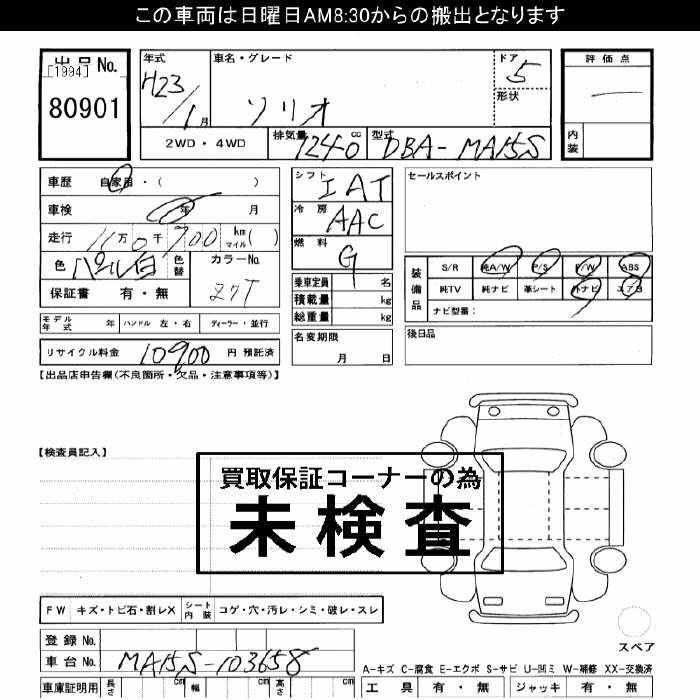 この車両は日曜日AM8:30からの搬出となります
出品No.
[1994]
80901
年式
H23/1月
車名・グレード
ソリオ
ドア
5
形状
評価点
内装
2WD・4WD
排気量 1240 cc
型式 DBA-MA15S
車歴 自家用・( )
車検 年 月
走行 11万0千700 km マイル( )
色 パール白
色替
カラーNo.
ZQT
保証書 有・無
モデル年式 年 ハンドル 左・右 ディーラー・並行
リサイクル料金 10900 円 預託済
シフト IAT
冷房 AAC
燃料 G
乗車定員 名
積載量 kg
総重量 kg
名変期限
月 日
セールスポイント
装備品
S/R 純A/W P/S P/W ABS
純TV 純ナビ 革シート 外ナビ エアB
ナビ型番:
後日品
【出品店申告欄(不良箇所・欠品・注意事項等)】
【検査員記入】
買取保証コーナーの為
未検査
FW キズ・トビ石・割レX シート内装 コゲ・穴・汚レ・シミ・破レ・スレ
登録No.
車台No. MA15S-103658
車庫証明用 長さ cm 幅 cm 高さ cm
スペア
A-キズ C-腐食 E-エクボ S-サビ U-凹ミ W-補修 XX-交換済
工具 有・無 ジャッキ 有・無